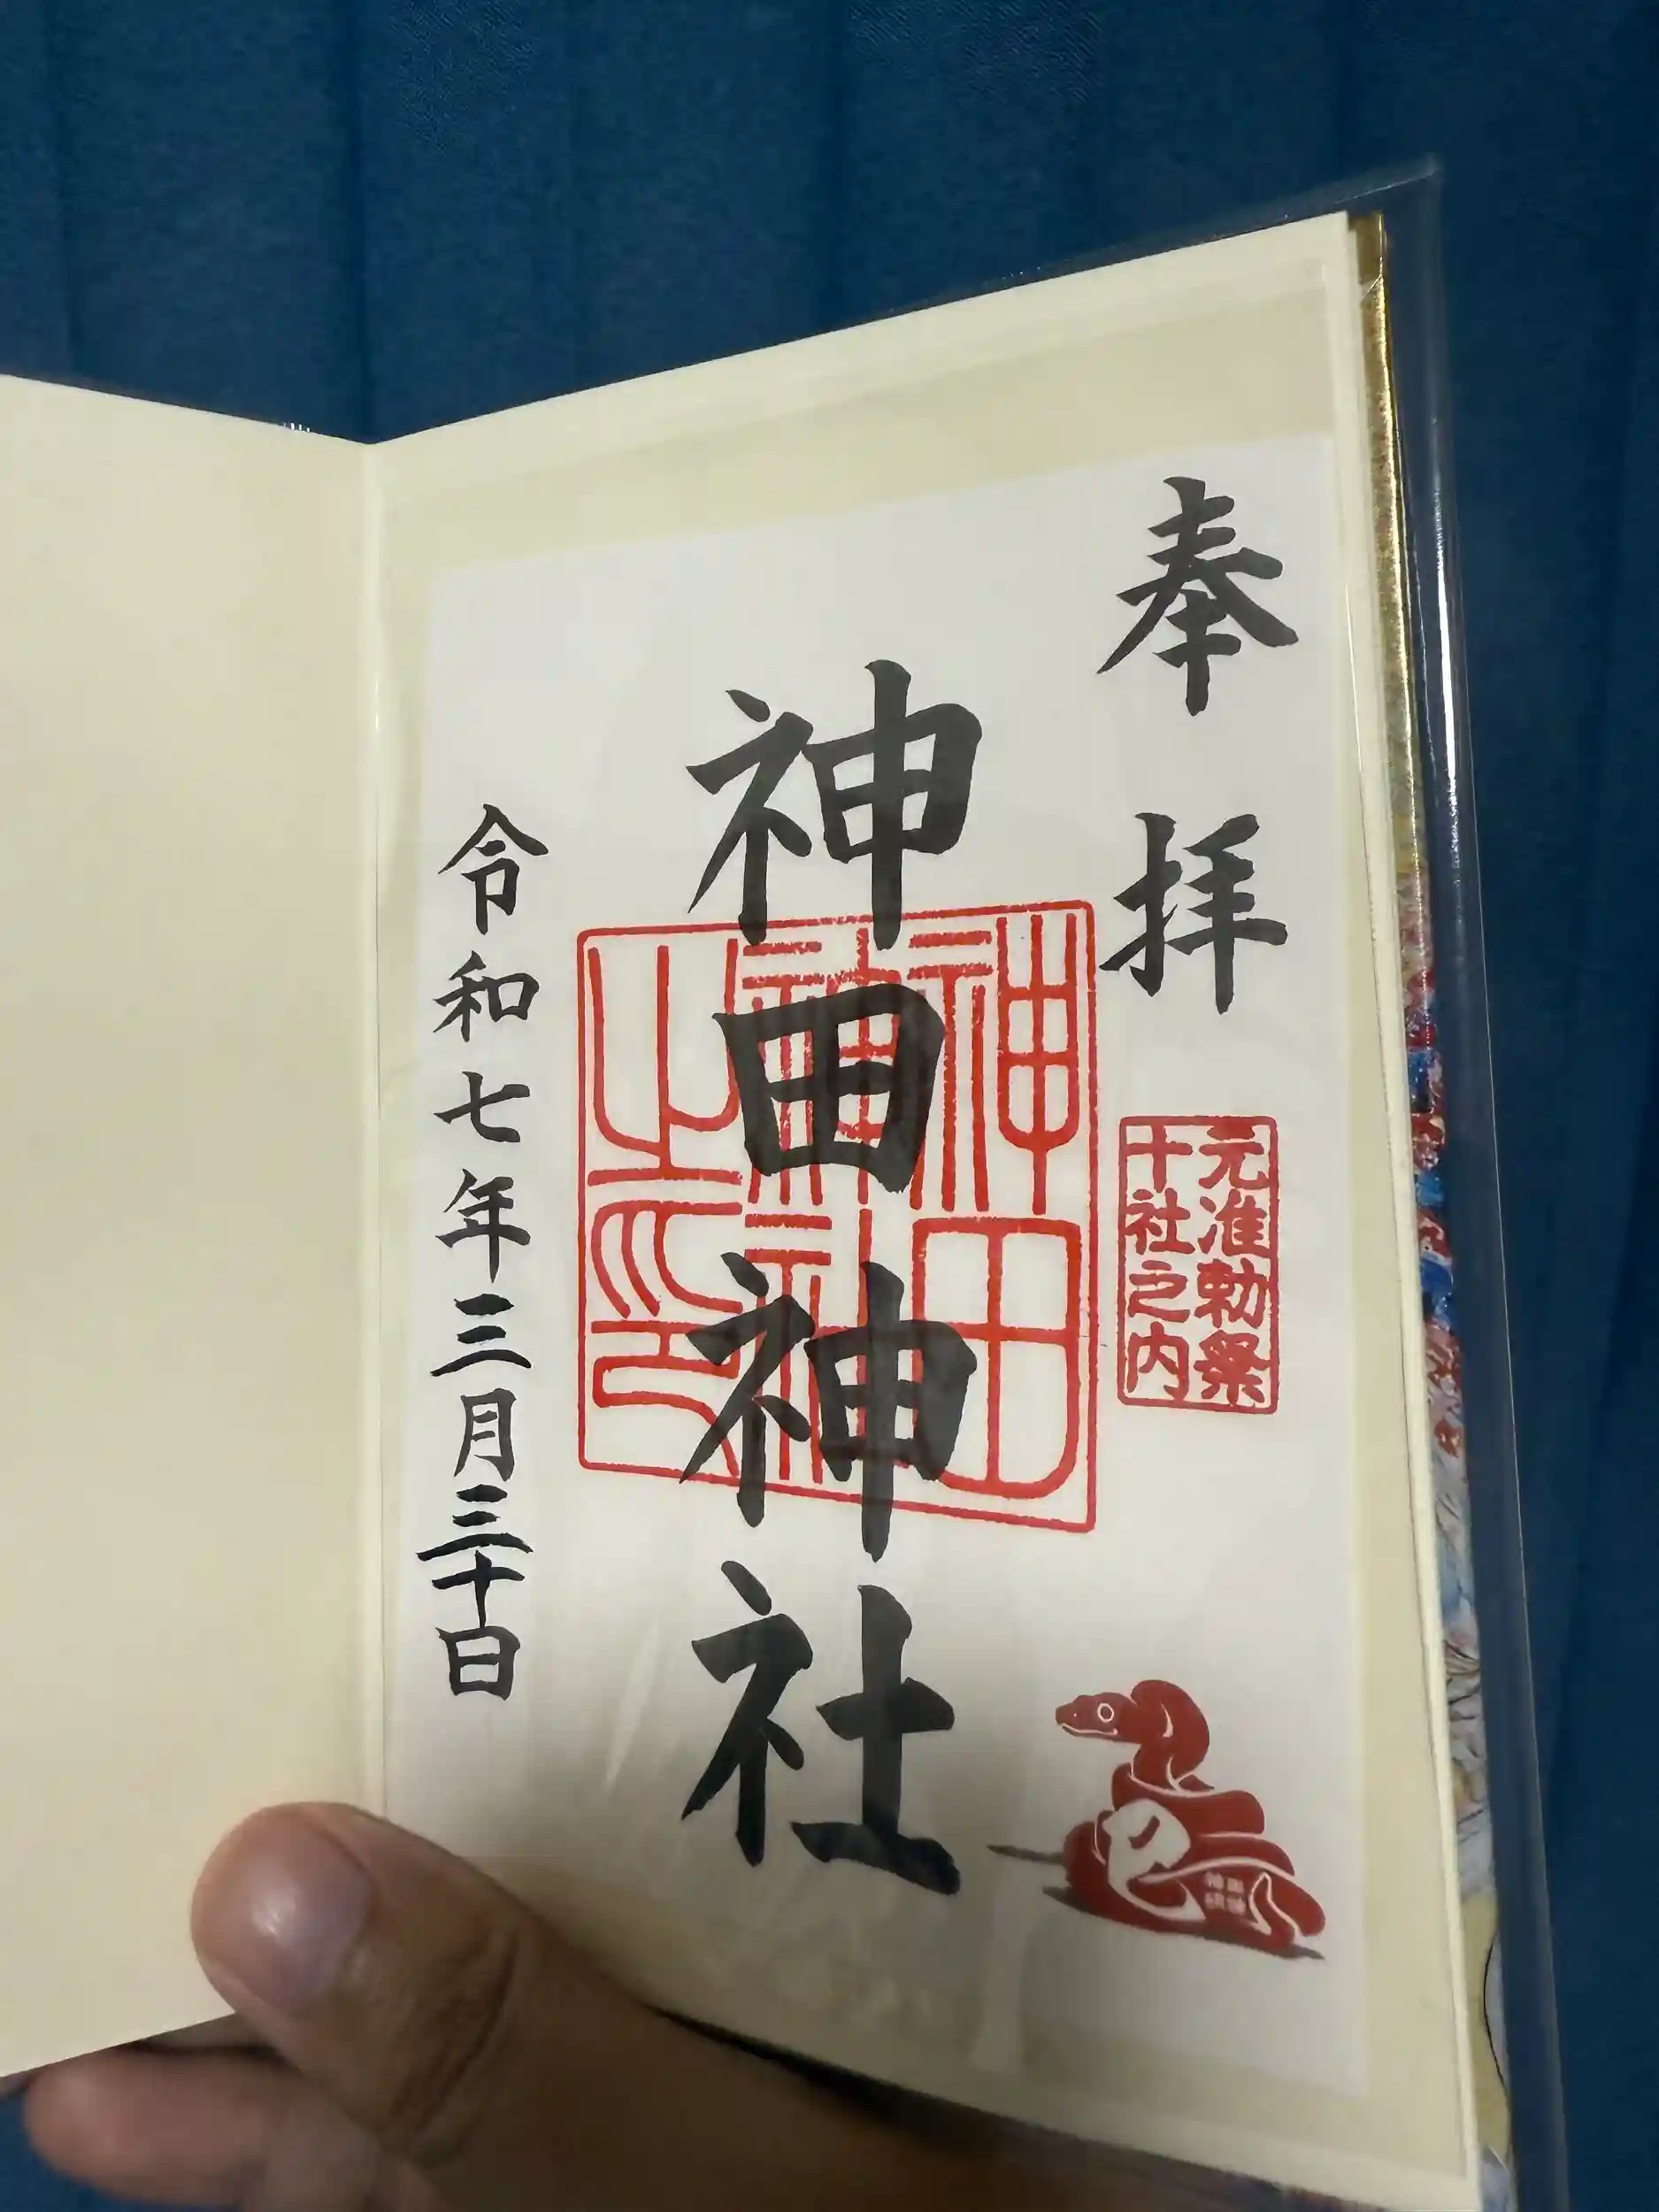 奉拝
元准勅祭
十社之内
神田神社
神田
神社
之印
令和七年三月三十日
巳